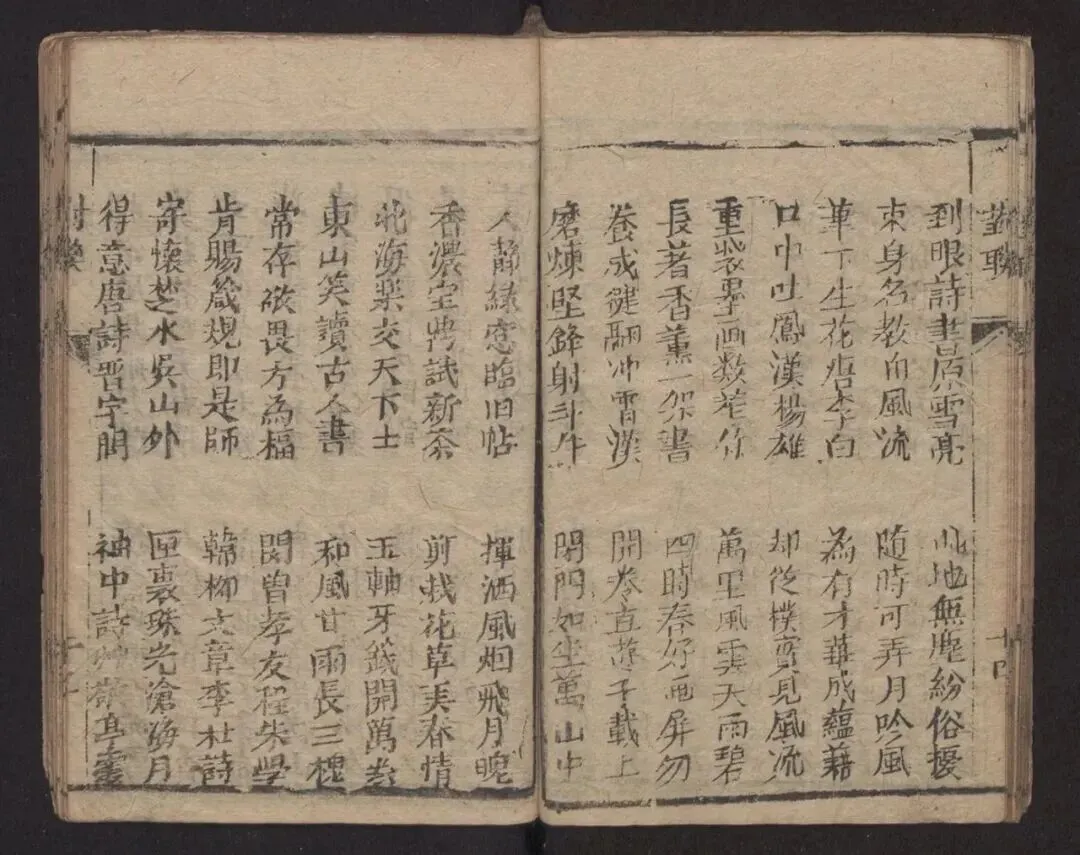 對聯
到眼詩書原雪亮
此地無塵紛俗擾
束身名教自風流
随時可弄月吟风
筆下生花唐李白
為有才華成蘊藉
口中吐鳳漢楊雄
却從樸實見風流
重裝畫数竿竹
萬里風雲天雨碧
長著香薰一架書
四時春好画屏
養成健翮冲霄漢
開卷直游千載上
磨煉堅鋒射斗牛
閉門如坐萬山中
人靜緑窓臨旧帖
揮洒風烟飛月魄
香濃宝鸭試新茶
剪裁花草美春情
北海樂交天下士
玉軸牙籤開萬卷
東山笑讀古人書
和風甘雨長三槐
常存敬畏方為福
閔曽孝友程朱學
肯賜箴規即是師
韓柳文章李杜詩
寄懷楚水吳山外
匣裏珠光滄海月
得意唐詩晋字間
袖中詩
對聯
十四